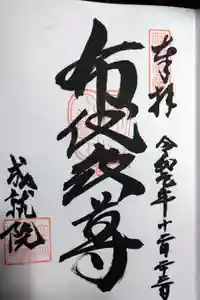 奉拝
令和元年十一月二十三日
布袋尊
成就院